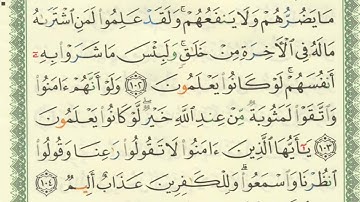 مَا يَضُرُّهُمْ وَلَا يَنفَعُهُمْ ۚ وَلَقَدْ عَلِمُوا۟ لَمَنِ ٱشْتَرَىٰهُ
مَا لَهُۥ فِى ٱلْـَٔاخِرَةِ مِنْ خَلَـٰقٍ ۚ وَلَبِئْسَ مَا شَرَوْا۟ بِهِۦٓ
أَنفُسَهُمْ ۚ لَوْ كَانُوا۟ يَعْلَمُونَ ١٠٢ وَلَوْ أَنَّهُمْ ءَامَنُوا۟
وَٱتَّقَوْا۟ لَمَثُوبَةٌ مِّنْ عِندِ ٱللَّهِ خَيْرٌ ۖ لَّوْ كَانُوا۟ يَعْلَمُونَ
١٠٣ يَـٰٓأَيُّهَا ٱلَّذِينَ ءَامَنُوا۟ لَا تَقُولُوا۟ رَٰعِنَا وَقُولُوا۟
ٱنظُرْنَا وَٱسْمَعُوا۟ ۗ وَلِلْكَـٰفِرِينَ عَذَابٌ أَلِيمٌ ١٠٤